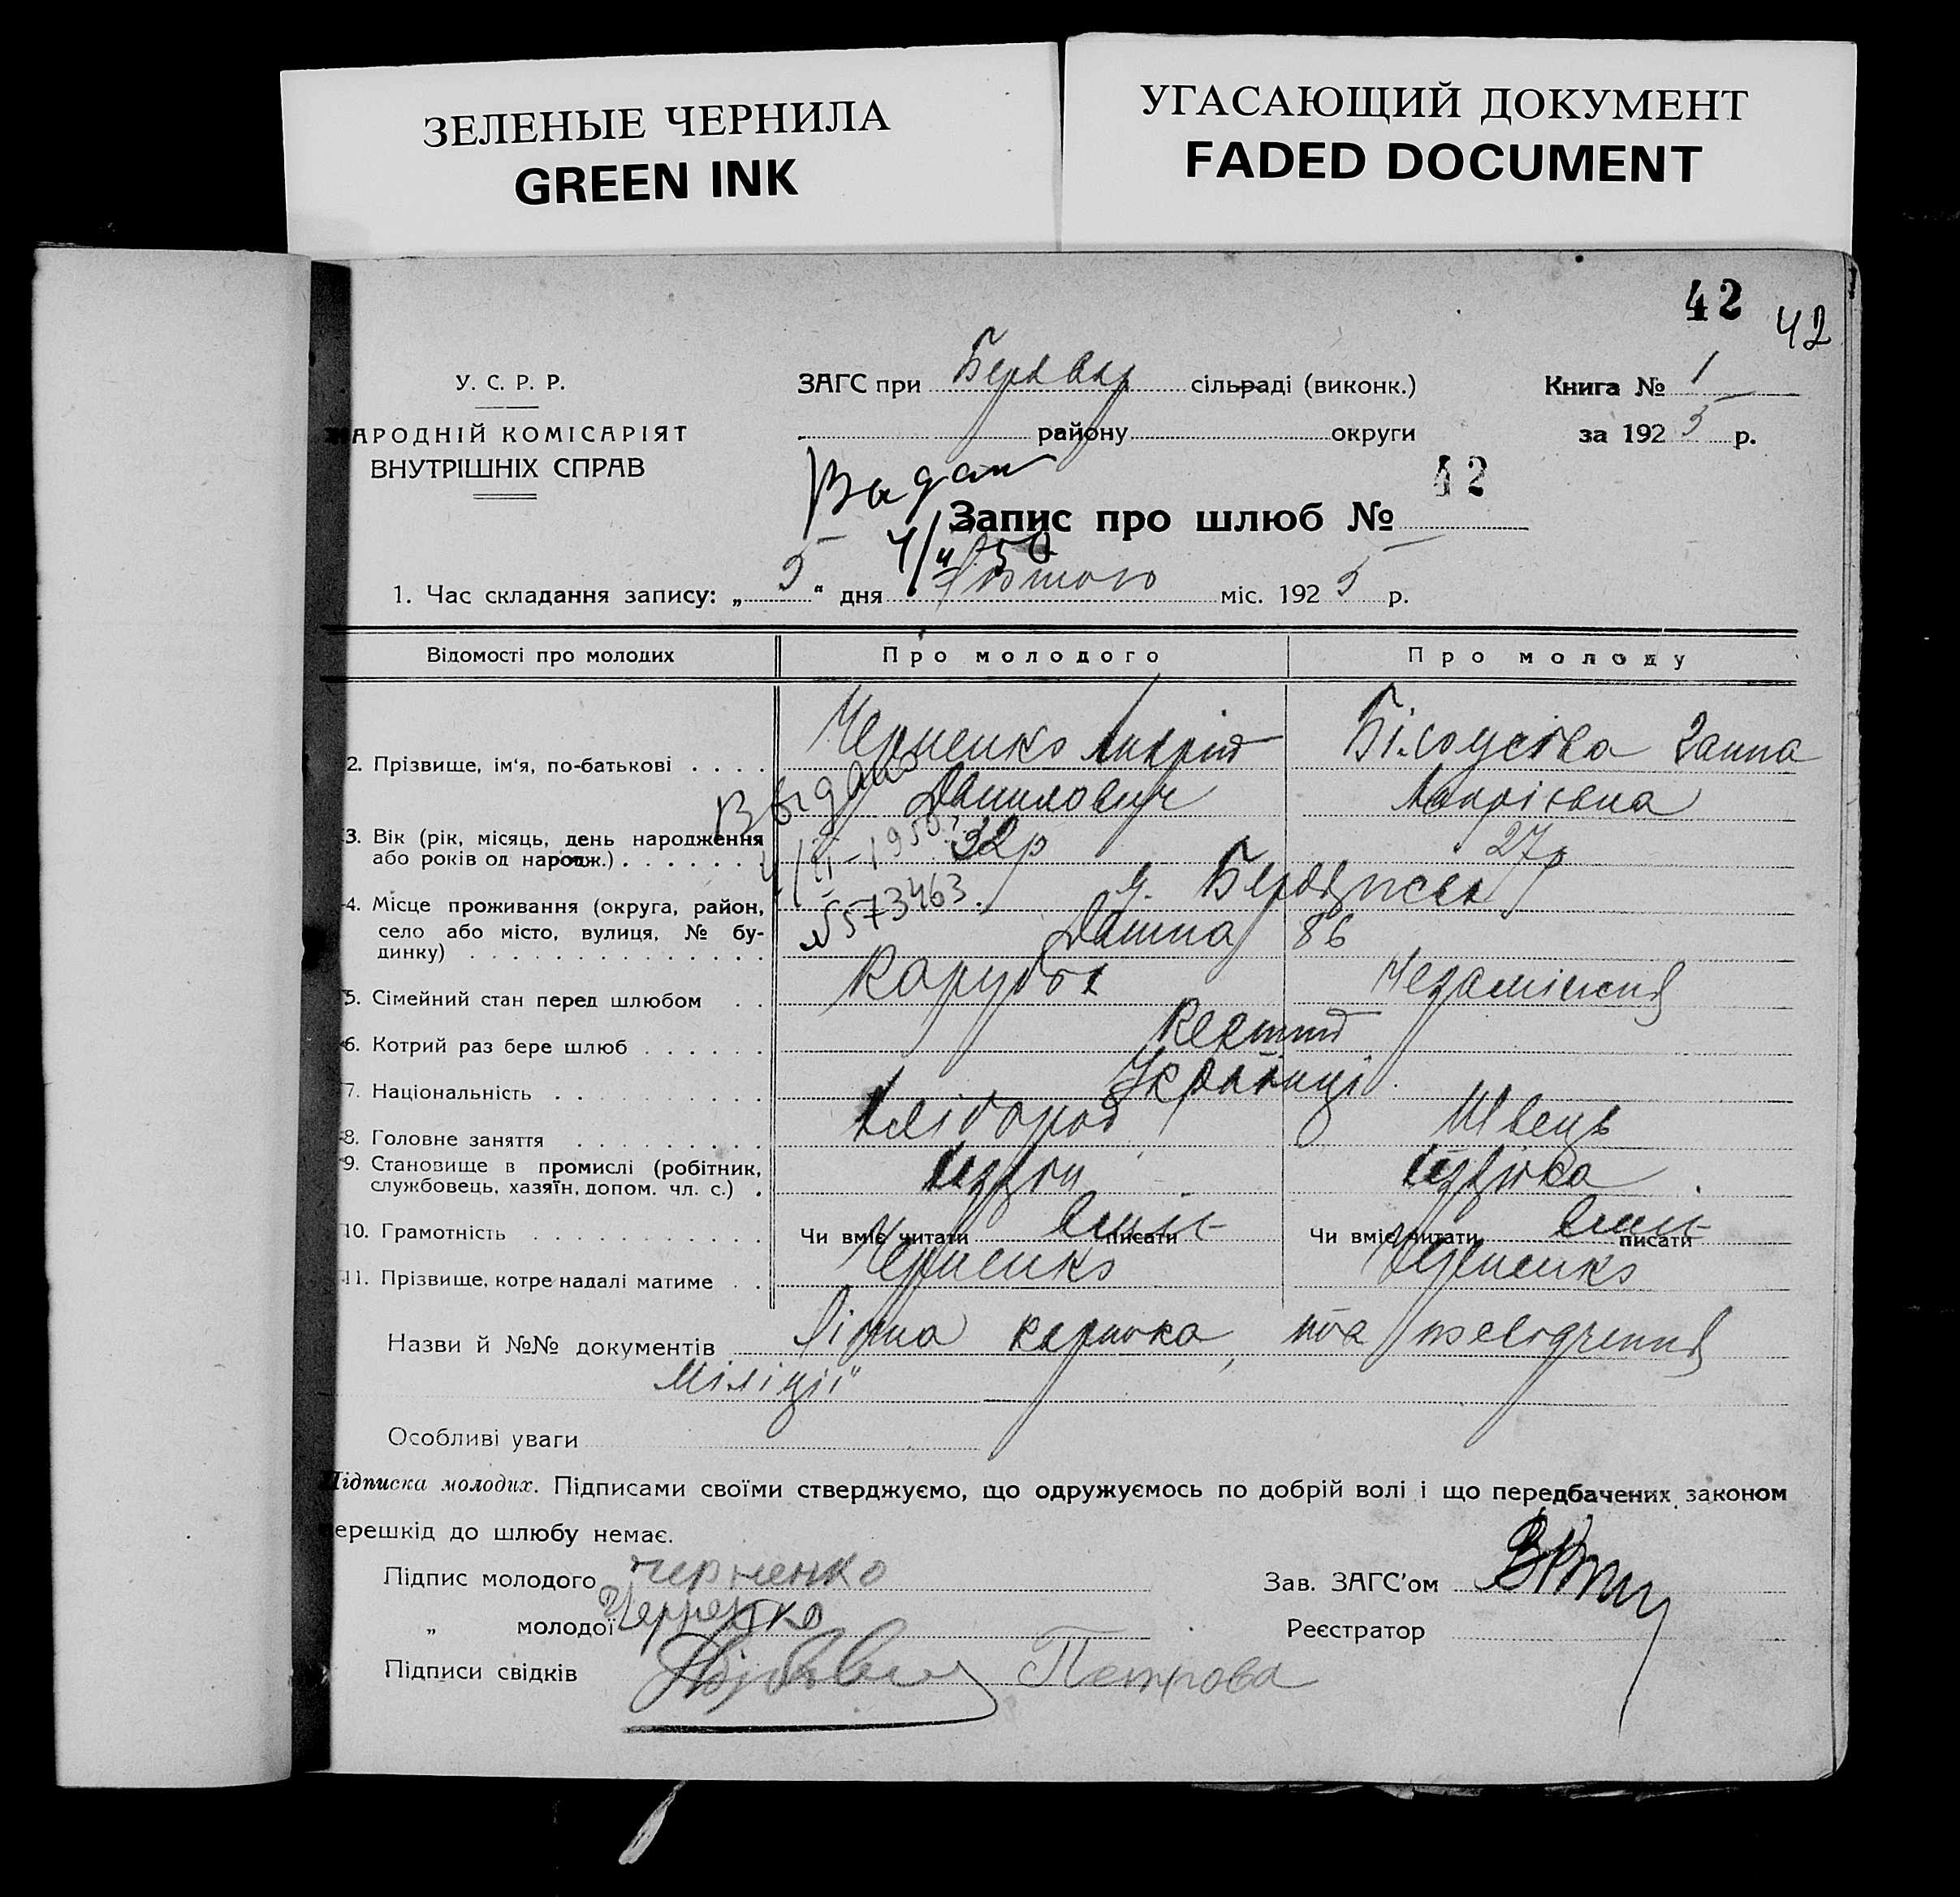 ЗЕЛЕНЫЕ ЧЕРНИЛА
GREEN INK
УГАСАЮЩИЙ ДОКУМЕНТ
FADED DOCUMENT
42 42
У. С. Р. Р.
НАРОДНІЙ КОМІСАРІЯТ
ВНУТРІШНІХ СПРАВ
ЗАГС при сільраді (виконк.)
району округи
Книга № 1
за 1925 р.
Видан
Запис про шлюб № 42
4/II 50
1. Час складання запису: „ 5 “ дня Лютого міс. 1925 р.
Відомості про молодих Про молодого Про молоду
2. Прізвище, ім'я, по-батькові Черненко Андрій Білоусова Ганна
Данилович
Выдано
3. Вік (рік, місяць, день народження
або років од народж.) 32р 27р
4/II-1950
4. Місце проживання (округа, район,
село або місто, вулиця, № бу-
динку) 86
№573463.
5. Сімейний стан перед шлюбом Парубок Незаміжня
6. Котрий раз бере шлюб
7. Національність Українці
8. Головне заняття Хлібороб Швець
9. Становище в промислі (робітник,
службовець, хазяїн, допом. чл. с.)
10. Грамотність Чи вміє читати писати Чи вміє читати писати
11. Прізвище, котре надалі матиме Черненко Черненко
Назви й №№ документів картка, посвідчення
Міліції
Особливі уваги
Підписка молодих. Підписами своїми стверджуємо, що одружуємось по добрій волі і що передбачених законом
перешкід до шлюбу немає.
Підпис молодого Черненко
„ молодої Черненко
Підписи свідків Петрова
Зав. ЗАГС'ом
Реєстратор